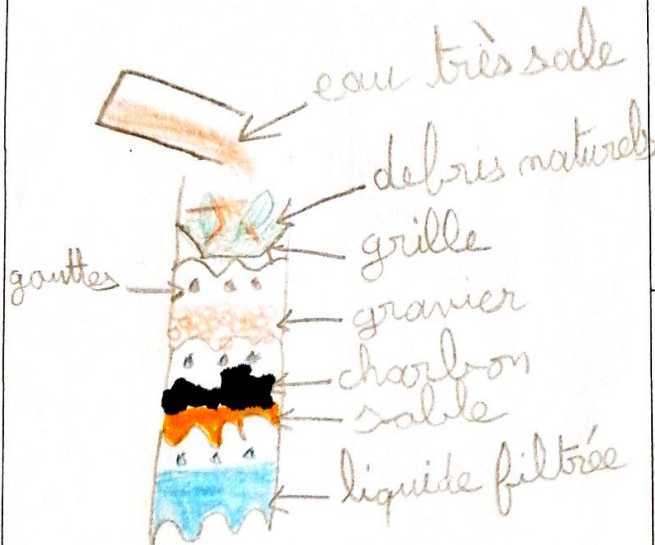 eau très sale
debris naturels
grille
gouttes
gravier
charbon
sable
liquide filtrée